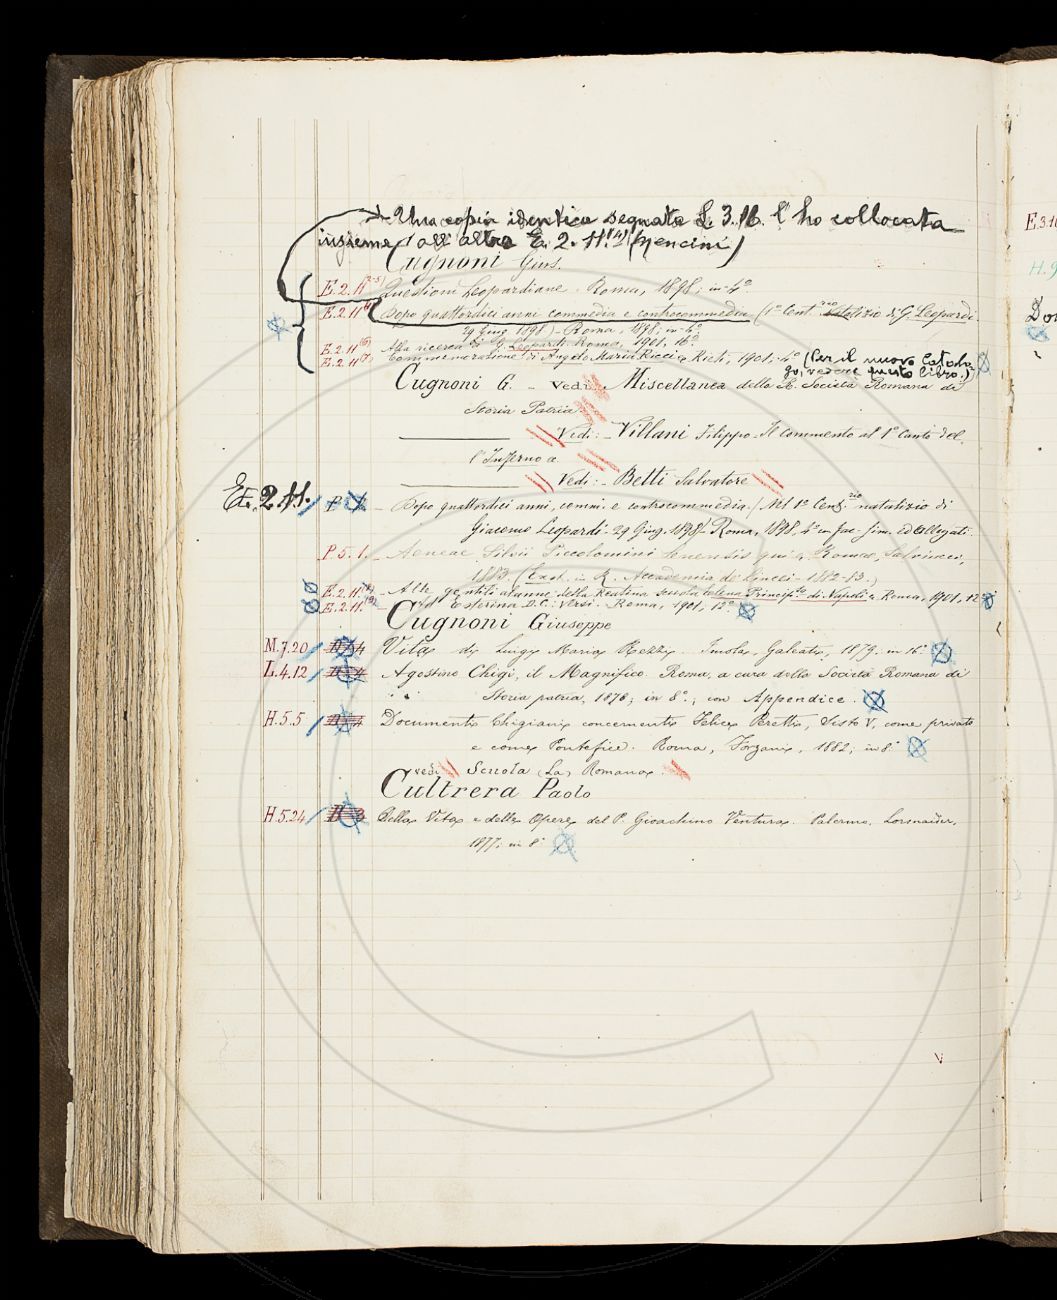 Una copia identica segnata L. 3. 16. l'ho collocata
insieme all'altra E. 2. 11.(4) (Mencini)
Cugnoni Gius.
E. 2. 11 (2-5) Questioni Leopardiane. Roma, 1898, in-4°
E. 2. 11 (4) Dopo quattordici anni commedia e controcommedia (1° Cent.rio natalizio di G. Leopardi
29 Giug. 1898) - Roma, 1898, in-4°
E. 2. 11 (6) Alla ricerca di G. Leopardi. Roma, 1901, 16°
E. 2. 11 (7) Commemorazione di Angelo Maria Ricci Rieti, 1901. 4° (Per il nuovo Catalo-
go, vedere questo libro.)
Cugnoni G. - Vedi Miscellanea della R. Società Romana di
Storia Patria
Vedi: - Villani Filippo - Il commento al 1° Canto del
l'Inferno
Vedi: - Betti Salvatore
E. 2. 11. Dopo quattordici anni, comm. e controcommedia. (Nel 1° Cent.rio natalizio di
Giacomo Leopardi - 29 Giug. 1898) Roma, 1898, 4° in fac-sim. ed allegati.
P. 5. 1. - Aeneae Silvii Piccolomini Senensis qui Romae, Salviucci,
1883. (East. in R. Accademia de' Lincei - 1882-83.)
E. 2. 11 - Alle gentili alunne della Reatina scuola Elena Princip.sa di Napoli Roma, 1901, 12°
E. 2. 11. (9) Ad Esterina D. C.: versi. Roma, 1901, 12°
Cugnoni Giuseppe
M. 7. 20 Vita di Luigi Maria Rezzi. Imola, Galeati, 1879. in 16°
L. 4. 12 Agostino Chigi, il Magnifico. Roma, a cura della Società Romana di
Storia patria, 1878; in 8°., con Appendice.
H. 5. 5 Documenti Chigiani concernenti Felice Peretti, Sisto V, come privato
e come Pontefice. Roma, Forzani, 1882; in 8°
vedi Scuola (La) Romana.
Cultrera Paolo
H. 5. 24 Della Vita e delle Opere del P. Gioachino Ventura. Palermo, Lorsnaider,
1877; in 8°
E. 3. 1
H. 9
Do